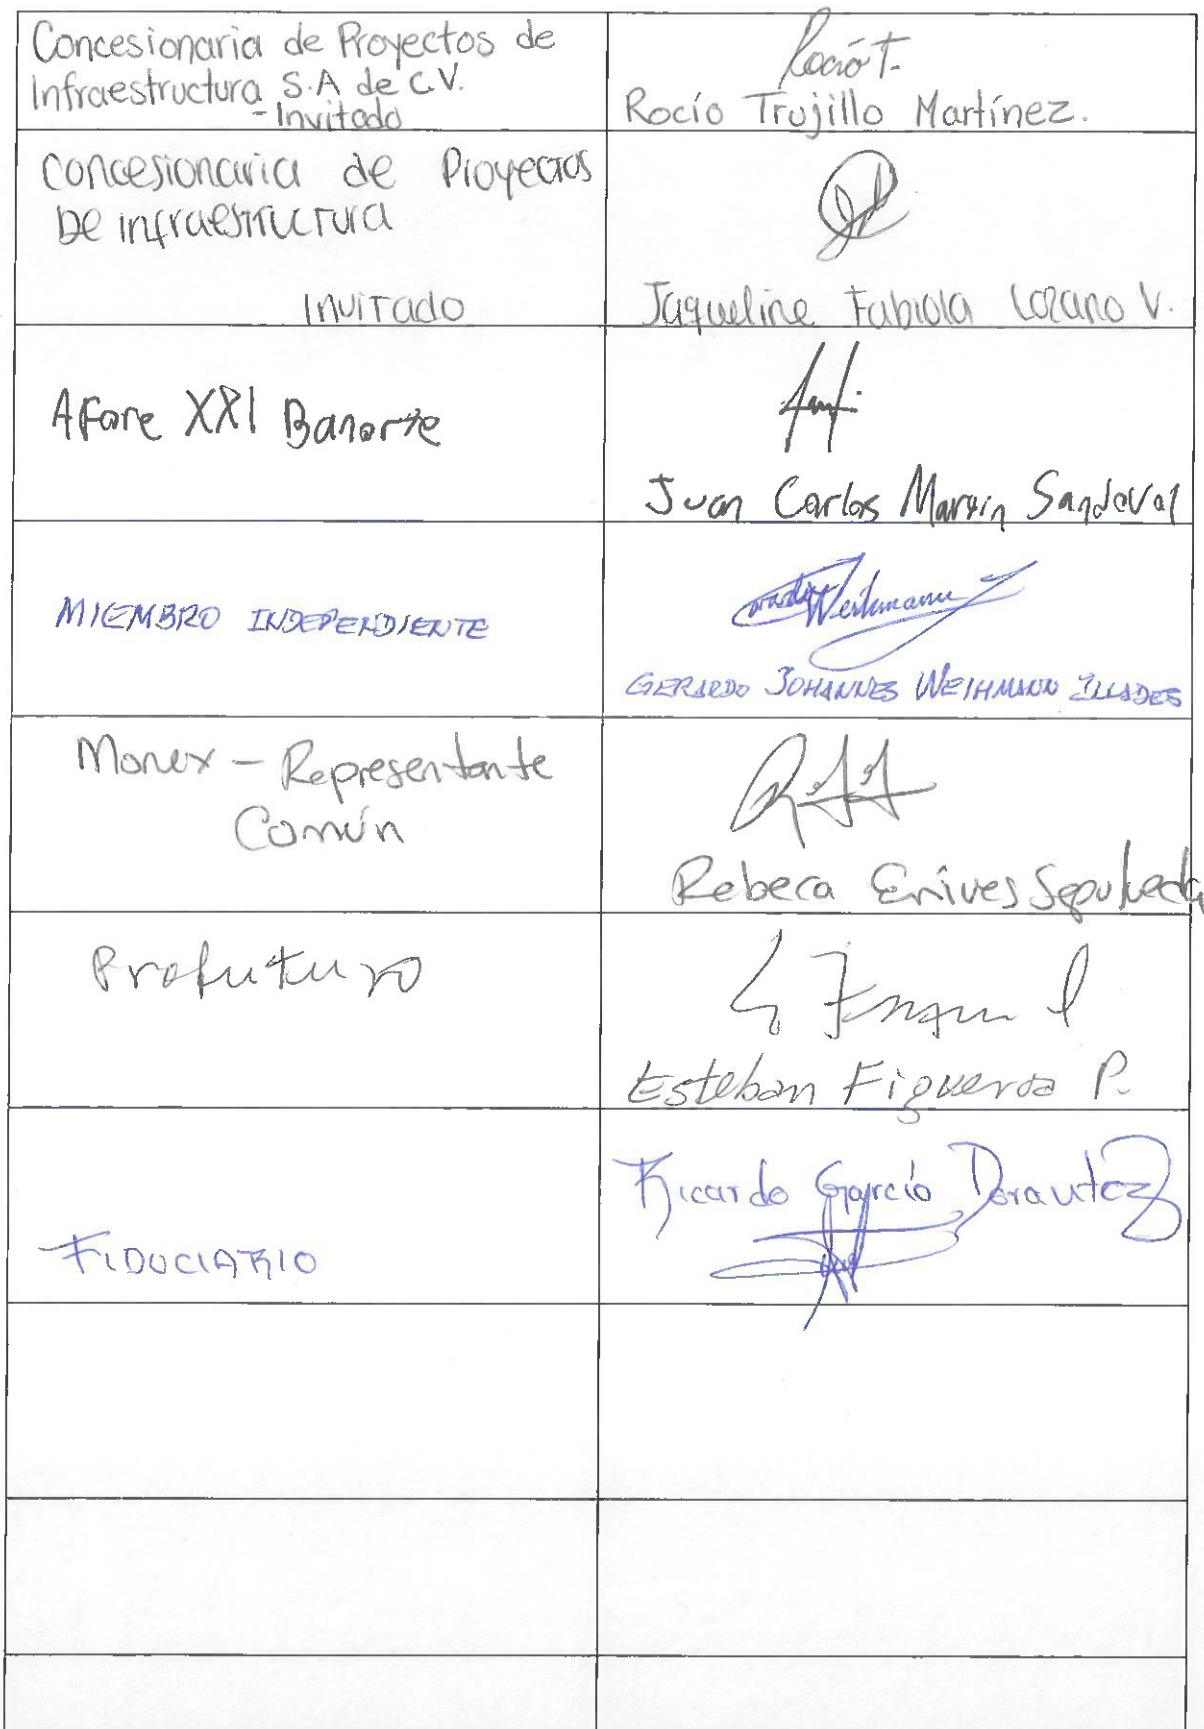 Concesionaria de Proyectos de
Infraestructura S.A de C.V.
-Invitado
Rocío T.
Rocío Trujillo Martínez.
Concesionaria de Proyectos
De infraestructura
Invitado
Jaqueline Fabiola Lozano V.
Afore XXI Banorte
Juan Carlos Marvin Sandoval
MIEMBRO INDEPENDIENTE
Weihmann
GERARDO JOHANNES WEIHMANN ILLADES
Monex - Representante
Común
Rebeca Erives Sepulveda
Profuturo
Esteban Figueroa P.
FIDUCIARIO
Ricardo García